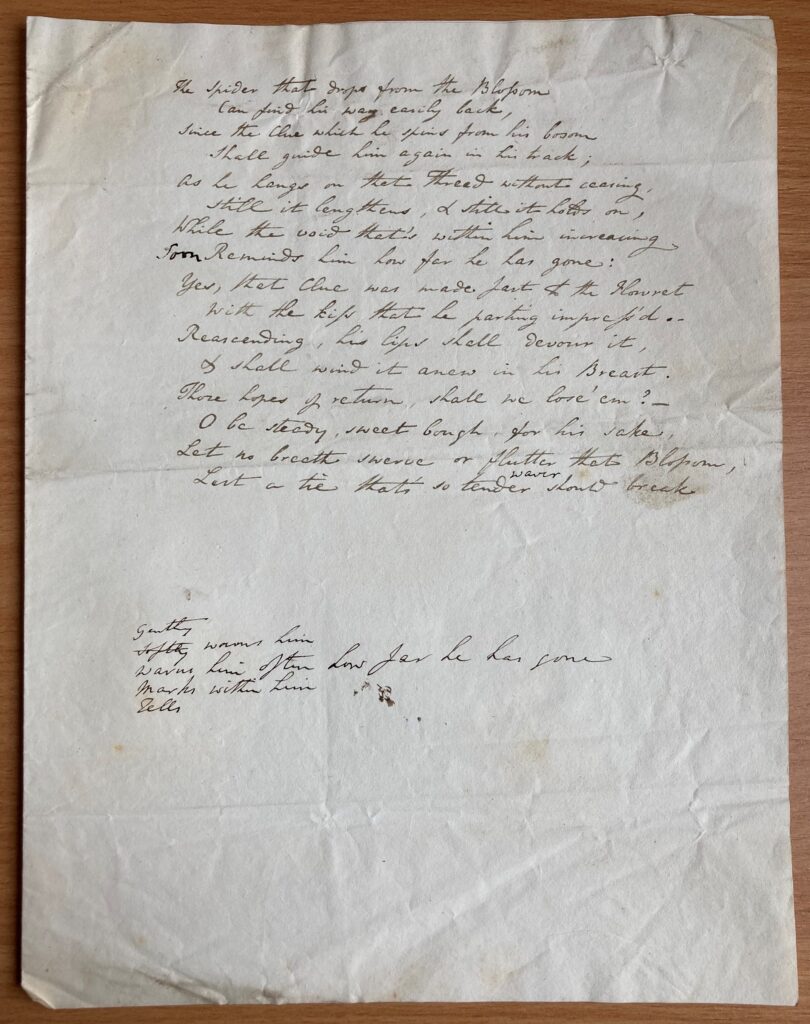 The spider that drops from the Bloſsom
Can find his way easily back,
Since the Clue which he spins from his bosom
Shall guide him again in his track;
As he hangs on that Thread without ceasing,
Still it lengthens, & still it holds on,
While the void that's within him increasing
Soon Reminds him how far he has gone:
Yes, that Clue was made fast to the Flowret
With the kiſs that he parting impreſs'd --
Reascending, his lips shall devour it,
& shall wind it anew in his Breast.
Those hopes of return, shall we lose 'em? —
O be steady, sweet bough, for his sake,
Let no breath swerve or flutter that Bloſsom,
waver
Lest a tie that's so tender should break
Gently
Softly warns him
warns him often how far he has gone
Marks within him
Tells